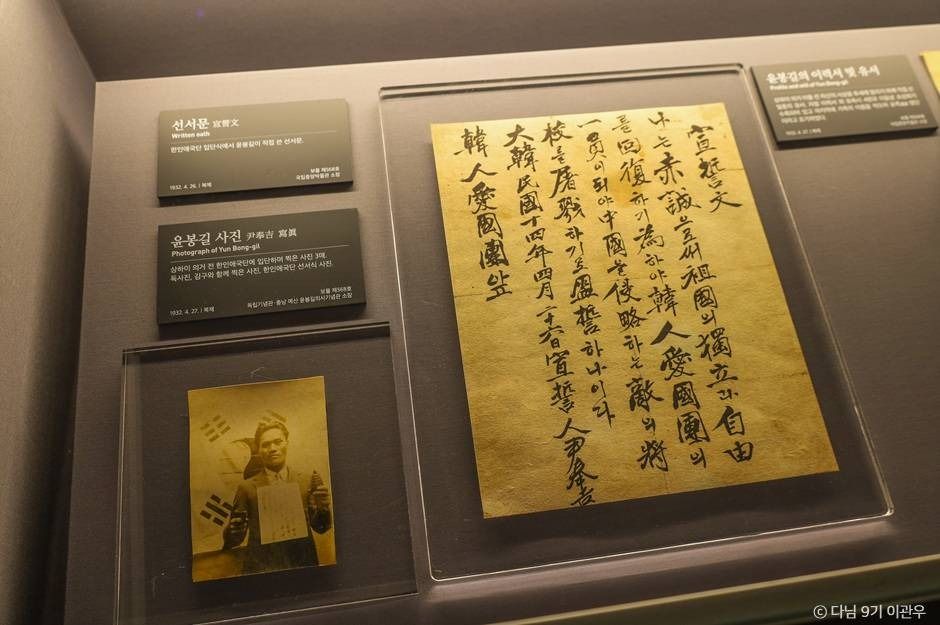 선서문 宣誓文
Written oath
한인애국단 입단식에서 윤봉길이 직접 쓴 선서문.
보물 제568호
국립중앙박물관 소장
1932. 4. 26. | 복제
윤봉길 사진 尹奉吉 寫眞
Photograph of Yun Bong-gil
상하이 의거 전 한인애국단에 입단하며 찍은 사진 3매.
독사진, 김구와 함께 찍은 사진, 한인애국단 선서식 사진.
보물 제568호
독립기념관·충남 예산 윤봉길의사기념관 소장
1932. 4. 27. | 복제
宣誓文
나는 赤誠으로써 祖國의 獨立과 自由
를 回復하기 爲하야 韓人愛國團의
一員이 되야 中國을 侵略하는 敵의 將
校를 屠戮하기로 盟誓하나이다
大韓民國十四年四月二十六日 宣誓人 尹奉吉
韓人愛國團 앞
윤봉길의 이력서 및 유서
Profile and will of Yun Bong-gil
ⓒ 다님 9기 이관우